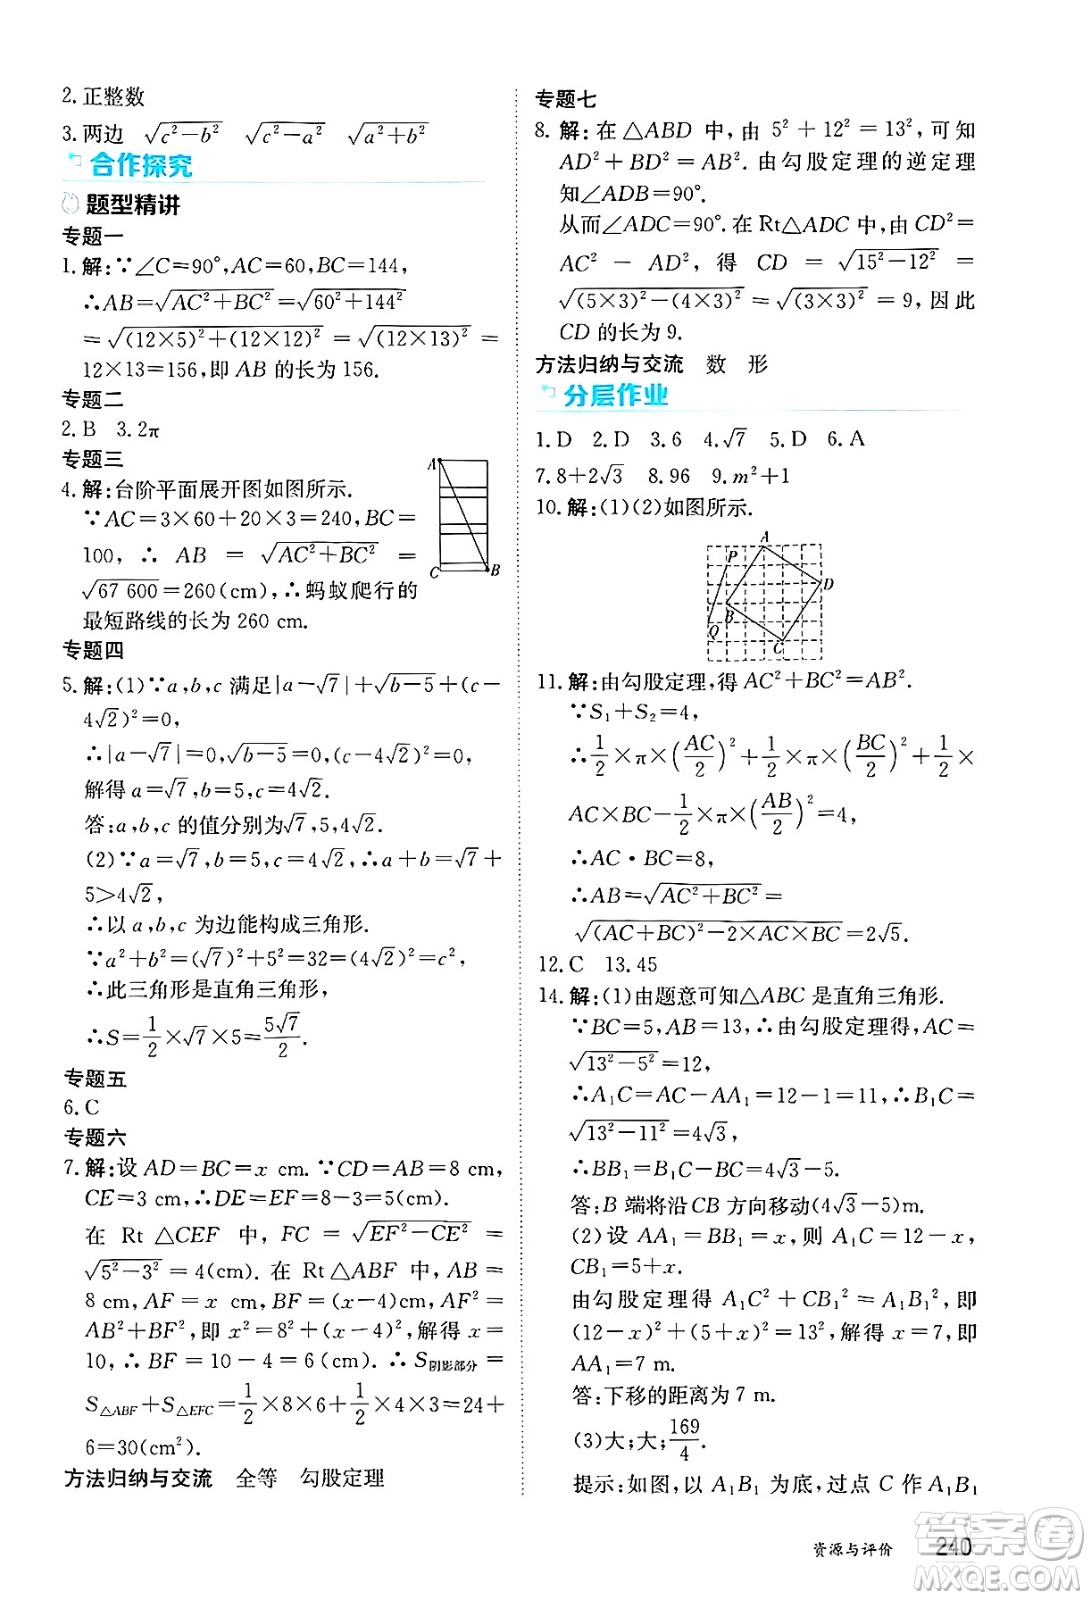 2. 正整数
3. 两边 √(c²−b²) √(c²−a²) √(a²+b²)
合作探究
题型精讲
专题一
1. 解:∵∠C=90°,AC=60,BC=144,
∴AB=√(AC²+BC²)=√(60²+144²)
=√((12×5)²+(12×12)²)=√(12²×13²)=
12×13=156,即 AB 的长为 156.
专题二
2. B 3. 2π
专题三
4. 解:台阶平面展开图如图所示.
∵AC=3×60+20×3=240,BC=
100,∴AB=√(AC²+BC²)=
√(67 600)=260(cm).∴蚂蚁爬行的
最短路线的长为 260 cm.
A
C
B
专题四
5. 解:(1)∵a,b,c 满足|a−√7|+√(b−5)+(c−
4√2)²=0,
∴|a−√7|=0,√(b−5)=0,(c−4√2)²=0.
解得 a=√7,b=5,c=4√2.
答:a,b,c 的值分别为√7,5,4√2.
(2)∵a=√7,b=5,c=4√2,∴a+b=√7+
5>4√2,
∴以 a,b,c 为边能构成三角形.
∵a²+b²=(√7)²+5²=32=(4√2)²=c²,
∴此三角形是直角三角形,
∴S=1/2×√7×5=5√7/2.
专题五
6. C
专题六
7. 解:设 AD=BC=x cm.∵CD=AB=8 cm,
CE=3 cm,∴DE=EF=8−3=5(cm).
在 Rt△CEF 中,FC=√(EF²−CE²)=
√(5²−3²)=4(cm).在 Rt△ABF 中,AB=
8 cm,AF=x cm,BF=(x−4)cm,AF²=
AB²+BF²,即 x²=8²+(x−4)²,解得 x=
10,∴BF=10−4=6(cm).∴S阴影部分=
S△ABF+S△EFC=1/2×8×6+1/2×4×3=24+
6=30(cm²).
方法归纳与交流 全等 勾股定理
专题七
8. 解:在△ABD 中,由 5²+12²=13²,可知
AD²+BD²=AB².由勾股定理的逆定理
知∠ADB=90°.
从而∠ADC=90°.在 Rt△ADC 中,由 CD²=
AC²−AD²,得 CD=√(15²−12²)=
√((5×3)²−(4×3)²)=√((3×3)²)=9,因此
CD 的长为 9.
方法归纳与交流 数 形
分层作业
1. D 2. D 3. 6 4. √7 5. D 6. A
7. 8+2√3 8. 96 9. m²+1
10. 解:(1)(2)如图所示.
A
P
D
B
Q
C
11. 解:由勾股定理,得 AC²+BC²=AB².
∵S₁+S₂=4,
∴1/2×π×(AC/2)²+1/2×π×(BC/2)²+1/2×
AC×BC−1/2×π×(AB/2)²=4,
∴AC·BC=8,
∴AB=√(AC²+BC²)=
√((AC+BC)²−2×AC×BC)=2√5.
12. C 13. 45
14. 解:(1)由题意可知△ABC 是直角三角形.
∵BC=5,AB=13,∴由勾股定理得,AC=
√(13²−5²)=12,
∴A₁C=AC−AA₁=12−1=11,∴B₁C=
√(13²−11²)=4√3,
∴BB₁=B₁C−BC=4√3−5.
答:B 端将沿 CB 方向移动(4√3−5)m.
(2)设 AA₁=BB₁=x,则 A₁C=12−x,
CB₁=5+x.
由勾股定理得 A₁C²+CB₁²=A₁B₁²,即
(12−x)²+(5+x)²=13²,解得 x=7,即
AA₁=7 m.
答:下移的距离为 7 m.
(3)大;大;169/4.
提示:如图,以 A₁B₁ 为底,过点 C 作 A₁B₁
资源与评价 240
答案卷
MXQE.COM